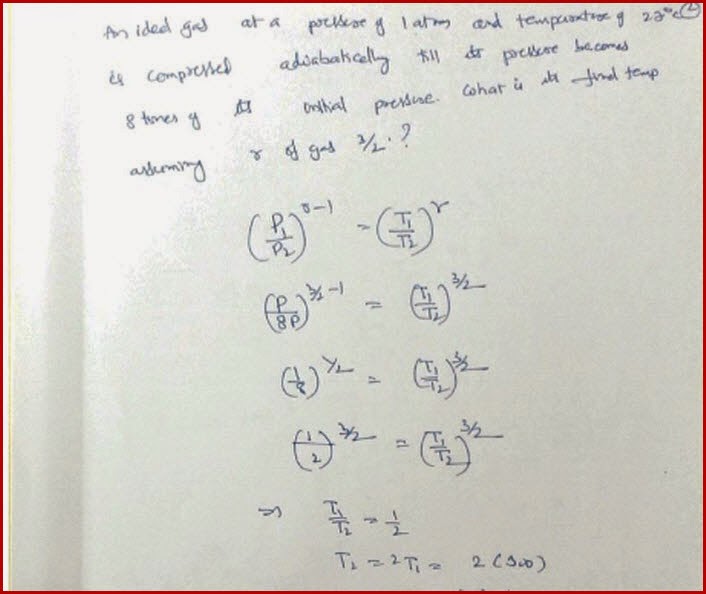 An ideal gas at a pressure of 1 atm and temperature of 27°C
is compressed adiabatically till its pressure becomes
8 times of its initial pressure. What is its final temp
assuming γ of gas 3/2.?
(P₁/P₂)^(γ-1) = (T₁/T₂)^γ
(P/8P)^(3/2-1) = (T₁/T₂)^(3/2)
(1/8)^(1/2) = (T₁/T₂)^(3/2)
(1/2)^(3/2) = (T₁/T₂)^(3/2)
⇒ T₁/T₂ = 1/2
T₂ = 2T₁ = 2(300)